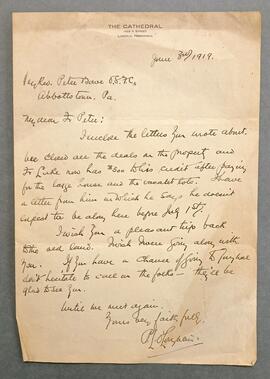 THE CATHEDRAL
LINCOLN, NEBRASKA
June 3rd, 1919.
Very Rev. Peter
Abbottstown, Pa.
My dear Fr Peter:
I inclose the letters you wrote about.
are the deals on the property and
Fr Luke now has $300 to his credit after paying
for the large house and the vacant lots. I have
a letter from him in which he says he doesn't
expect to be along here before July 1st.
I wish you a pleasant trip back
to the old land. I wish I were going along with
you. If you have a chance of going to
don't hesitate to call on the folks — they'll be
glad to see you.
Until we meet again.
Yours very faithfully,